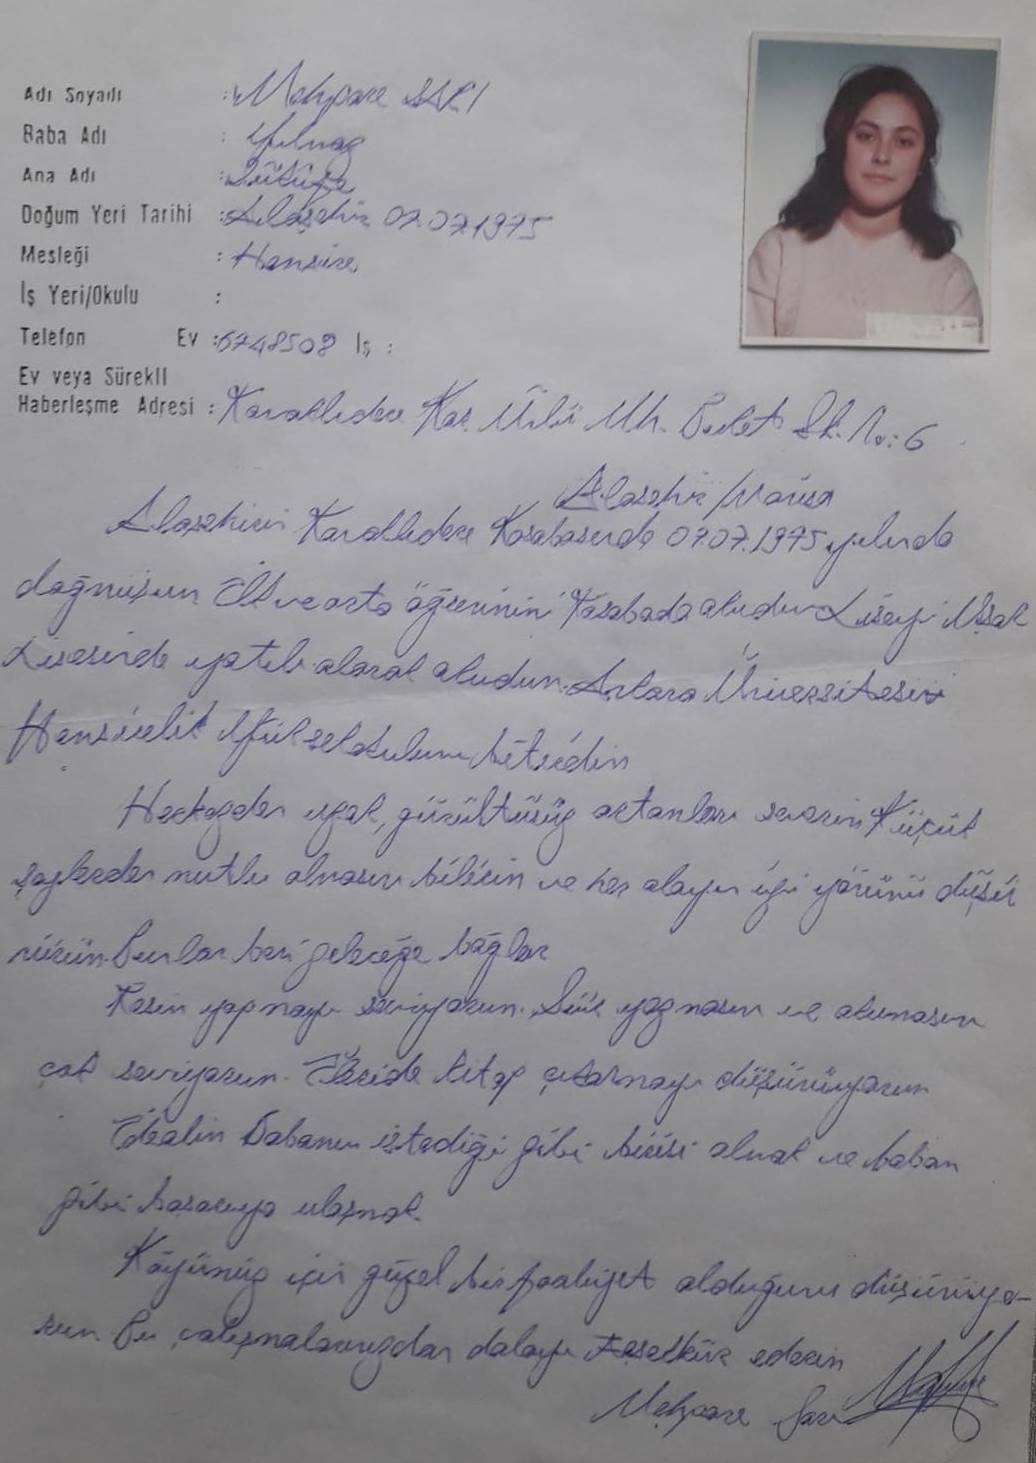 Adı Soyadı : Mehpare SARI
Baba Adı : Yılmaz
Ana Adı :
Doğum Yeri Tarihi : Alaşehir 07.07.1975
Mesleği : Hemşire
İş Yeri/Okulu :
Telefon Ev : 6748508 İş :
Ev veya Sürekli
Haberleşme Adresi : Kavaklıdere Kas. Ülkü Mh. Devlet Sk. No: 6
Alaşehir / Manisa
Alaşehirin Kavaklıdere Kasabasında 07.07.1975 yılında
doğmuşum İlk ve orta öğrenimi Kasabada okudum Liseyi Uşak
Lisesinde yatılı olarak okudum. Ankara Üniversitesi
Hemşirelik Yüksek okulunu bitirdim
Herkezden uzak, gürültüsüz ortamları severim Küçük
şeylerden mutlu olmasını bilirim ve her olayın iyi yönünü düşü
nürüm. Bunlar beni geleceğe bağlar
Resim yapmayı seviyorum. Şiir yazmasını ve okumasını
çok seviyorum. İleride kitap çıkarmayı düşünüyorum
İdealim Babamın istediği gibi birisi olmak ve babam
gibi başarıya ulaşmak.
Köyümüz için güzel bir faaliyet olduğunu düşünüyo-
rum. Bu çalışmalarınızdan dolayı Teşekkür ederim
Mehpare Sarı